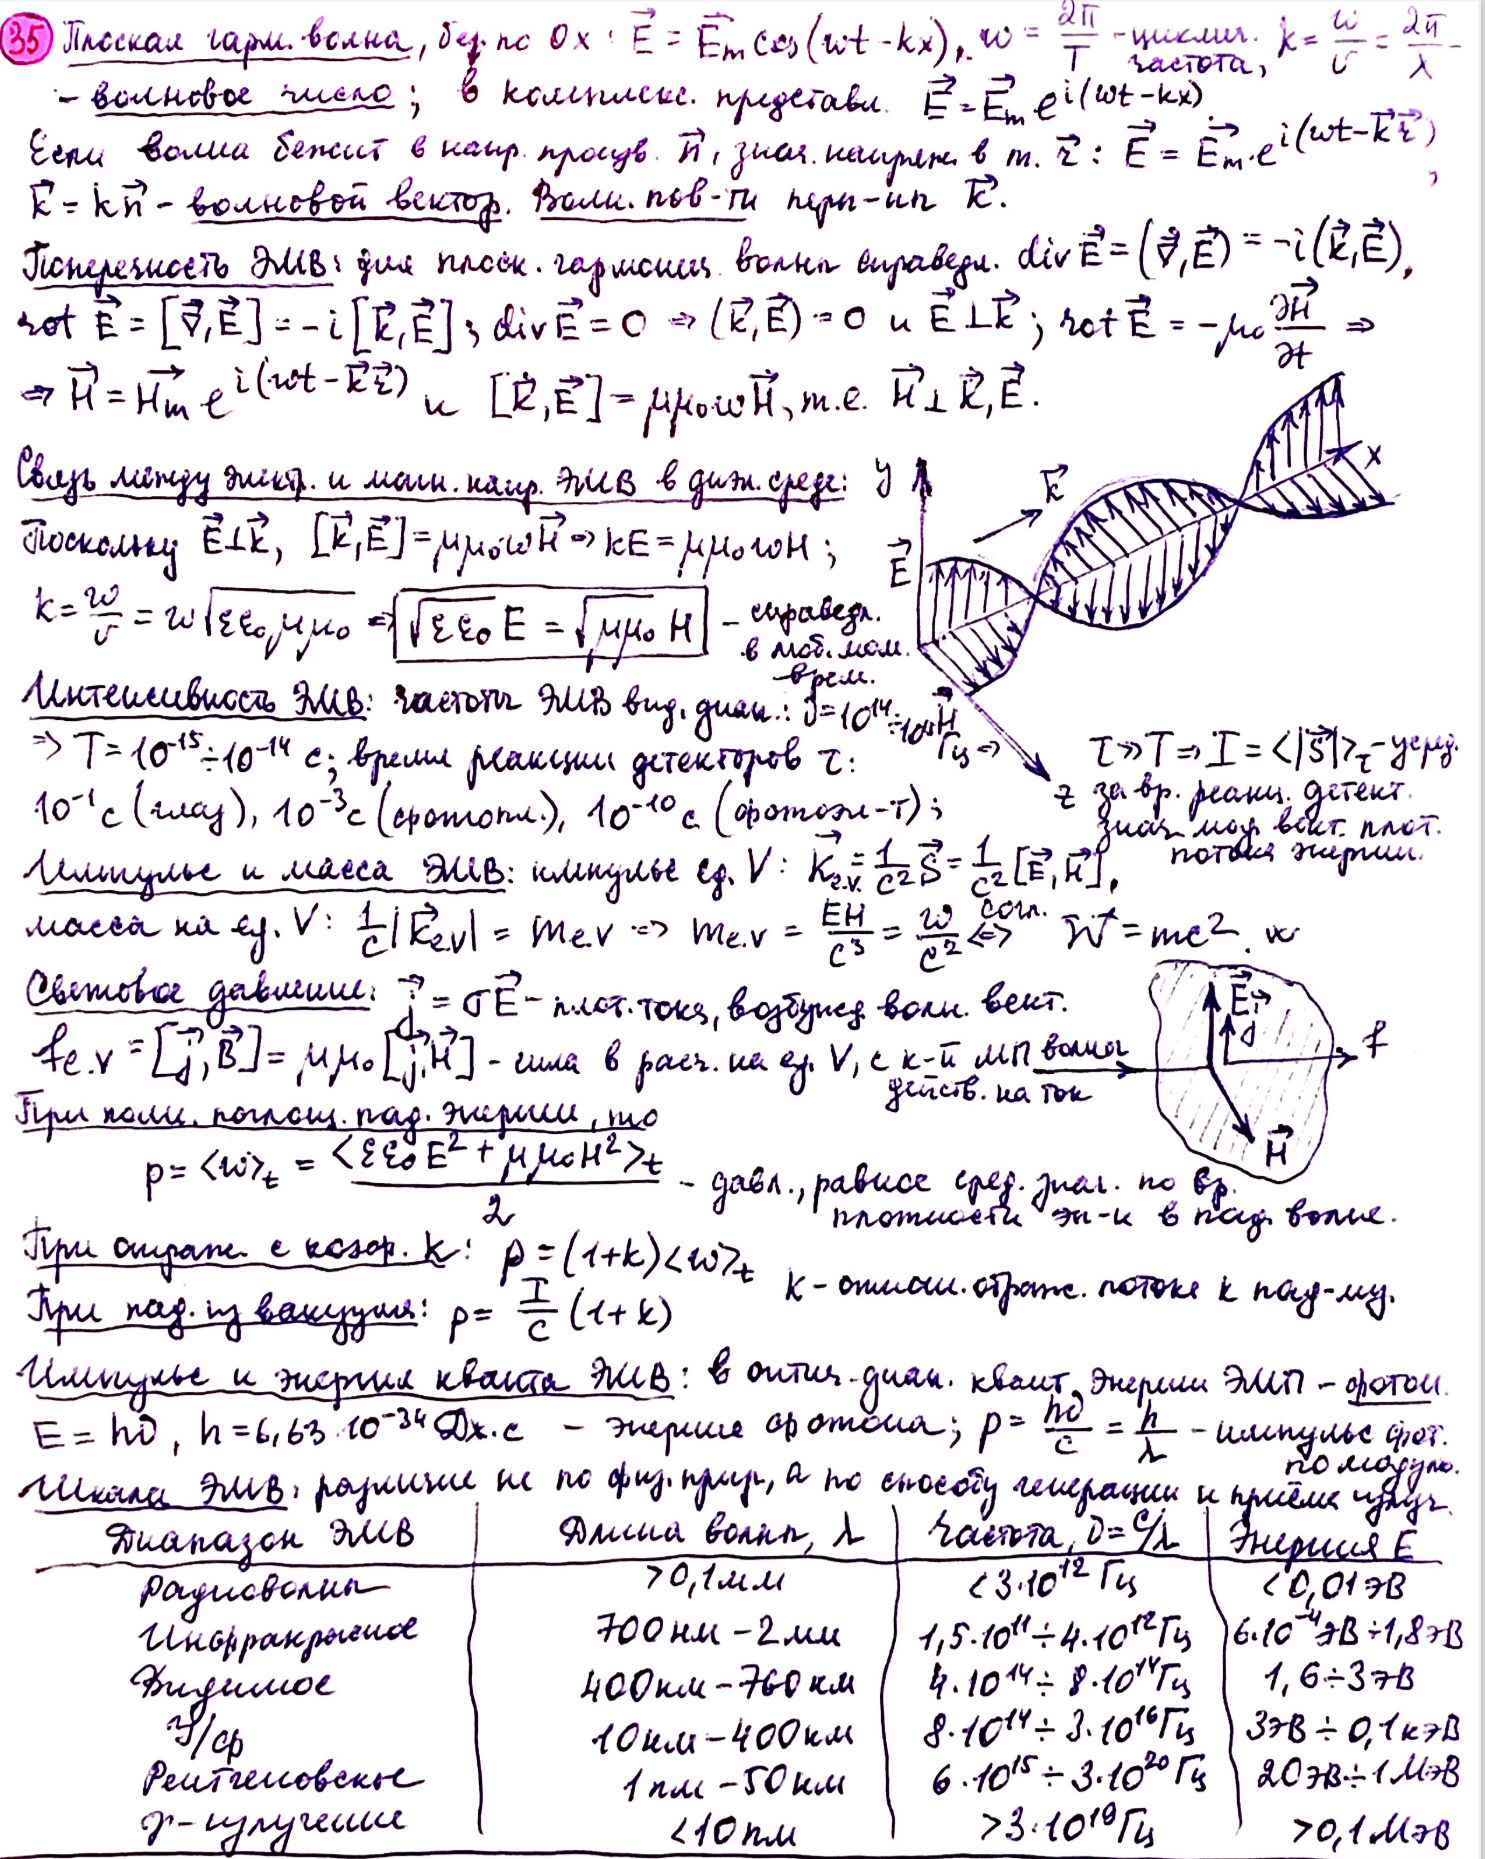 35 Плоская гарм. волна, бег. по Ox: E⃗ = E⃗m cos(ωt - kx), ω = 2π/T - циклич. частота, k = ω/υ = 2π/λ -
- волновое число; в комплекс. представл. E⃗ = E⃗m e^i(ωt-kx).
Если волна бежит в напр. произв. n⃗, знач. напряж. в т. r⃗: E⃗ = E⃗m·e^i(ωt-k⃗r⃗),
k⃗ = kn⃗ - волновой вектор. Волн. пов-ти перп-ны k⃗.
Поперечность ЭМВ: для плоск. гармонич. волны справедл. div E⃗ = (∇⃗, E⃗) = -i(k⃗, E⃗),
rot E⃗ = [∇⃗, E⃗] = -i[k⃗, E⃗]; div E⃗ = 0 ⇒ (k⃗, E⃗) = 0 и E⃗⊥k⃗; rot E⃗ = -μ₀ ∂H⃗/∂t ⇒
⇒ H⃗ = H⃗m e^i(ωt-k⃗r⃗) и [k⃗, E⃗] = μμ₀ωH⃗, т.е. H⃗⊥k⃗, E⃗.
Связь между электр. и магн. напр. ЭМВ в диэл. среде:
Поскольку E⃗⊥k⃗, [k⃗, E⃗] = μμ₀ωH⃗ ⇒ kE = μμ₀ωH;
k = ω/υ = ω√εε₀μμ₀ ⇒ √εε₀ E = √μμ₀ H - справедл.
в люб. мом.
врем.
y
k⃗
x
E⃗
H⃗
z
Интенсивность ЭМВ: частоты ЭМВ вид. диап.: ν = 10^14 ÷ 10^15 Гц ⇒
⇒ T = 10^-15 ÷ 10^-14 с; время реакции детекторов τ:
10^-1 с (глаз), 10^-3 с (фотопл.), 10^-10 с (фотоэл-т);
τ ≫ T ⇒ I = <|S⃗|>τ - усред.
за вр. реакц. детект.
знач. мод. вект. плот.
потока энергии.
Импульс и масса ЭМВ: импульс ед. V: K⃗e.v. = 1/c² S⃗ = 1/c² [E⃗, H⃗],
масса на ед. V: 1/c |K⃗e.v| = me.v ⇒ me.v = EH/c³ = w/c² согл. ⇔ W = mc².
Световое давление: j⃗ = σE⃗ - плот. тока, возбужд. волн. вект.
fe.v = [j⃗, B⃗] = μμ₀[j⃗, H⃗] - сила в расч. на ед. V, с к-й МП волны
действ. на ток
E⃗
j⃗
f
H⃗
При полн. поглощ. пад. энергии, то
p = <w>t = <εε₀E² + μμ₀H²>t / 2 - давл., равное сред. знач. по вр.
плотности эн-и в пад. волне.
При отраж. с коэф. k: p = (1+k)<w>t
k - отнош. отраж. потока к пад-му.
При пад. из вакуума: p = I/c (1+k)
Импульс и энергия кванта ЭМВ: в оптич. диап. квант энергии ЭМП - фотон.
E = hν, h = 6,63·10^-34 Дж·с - энергия фотона; p = hν/c = h/λ - импульс фот.
по модулю.
Шкала ЭМВ: различие не по физ. прир., а по способу генерации и приёма излуч.
Диапазон ЭМВ | Длина волны, λ | Частота, ν = c/λ | Энергия E
Радиоволны | >0,1мм | <3·10^12 Гц | <0,01эВ
Инфракрасное | 700нм - 2мм | 1,5·10^11 ÷ 4·10^12 Гц | 6·10^-4 эВ ÷ 1,8эВ
Видимое | 400нм - 760нм | 4·10^14 ÷ 8·10^14 Гц | 1,6 ÷ 3эВ
У/ф | 10нм - 400нм | 8·10^14 ÷ 3·10^16 Гц | 3эВ ÷ 0,1кэВ
Рентгеновское | 1пм - 50нм | 6·10^15 ÷ 3·10^20 Гц | 20эВ ÷ 1МэВ
γ-излучение | <10пм | >3·10^19 Гц | >0,1МэВ